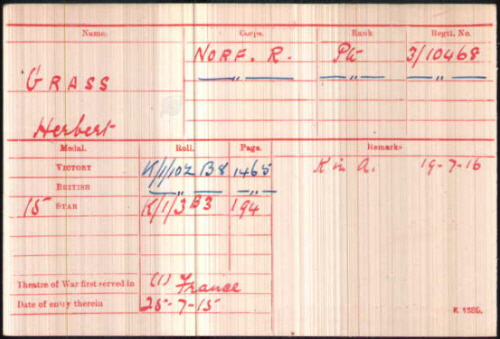 Name. Corps. Rank Regtl. No.
NORF. R. Pte 3/10468
— „ — — „ — — „ —
GRASS
Herbert
Medal. Roll. Page. Remarks
VICTORY K/1/102 B8 1465 K in A. 19-7-16
BRITISH — „ — — „ —
15 STAR K/1/3 B3 194
Theatre of War first served in (1) France
Date of entry therein 25-7-15
K 1380.